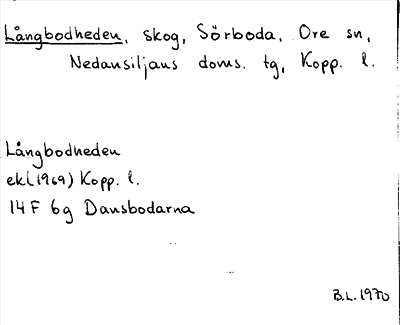 Långbodheden, skog, Sörboda, Ore sn,
Nedansiljans doms. tg, Kopp. l.
Långbodheden
ekl(1969) Kopp. l.
14 F 6g Dansbodarna
B.L. 1970